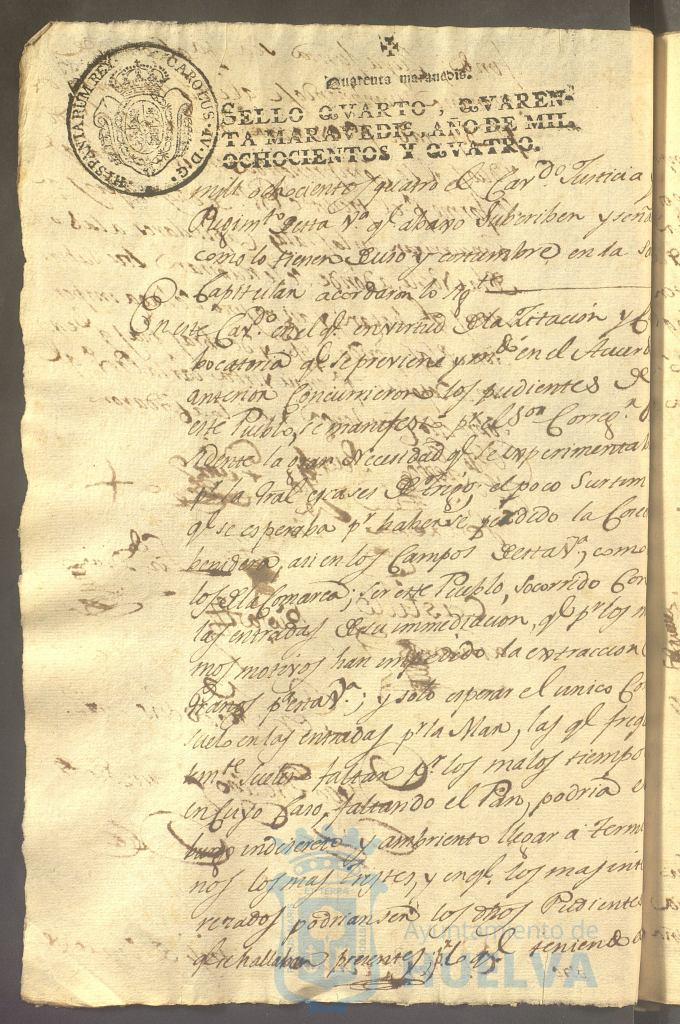 Quarenta maravedis.
HISPANIARUM.REX CAROLUS.IV.D.G.
SELLO QVARTO, QVAREN-
TA MARAVEDIS, AÑO DE MIL
OCHOCIENTOS Y QVATRO.
mill ochocientos quatro el Cav.do Justicia y
Regim.to desta V.a q.e abaxo Subcriben y señ
como lo tienen de uso y costumbre en la Sa
Capitular acordaron lo sig.te
En este Cav.do en el q.e en virtud de la Zitacion y C
bocatoria q.e se previene y en el Acuerd
anterior Concurrieron los pudientes de
este Pueblo, se manifestó p.r el S.or Correg.r
sidente la gran Necesidad q.e se experimentav
p.r la Gral escases de Trigo; el poco Surtim
q.e se esperaba p.r haberse perdido la Cose
benidera, asi en los Campos desta V.a, como
los de la Comarca; ser este Pueblo, socorrido Con
las entradas de su immediacion, q.e p.r los m
mos motivos han impedido la extraccion
Granos p.a esta V.a; y solo esperar el unico Con
suelo en las entradas p.r la Mar, las q.e freq
temte suelen faltar p.r los malos tiempo
en Cuyo Caso, faltando el Pan, podria el
indiscreto y ambriento llegar a Term
nos los mas tristes, y en q.e los mas int
rezados podrian ser los dhos Pudiente
q.e se hallaban presentes; p.r lo q.e teniendo
Ayuntamiento de
HUELVA